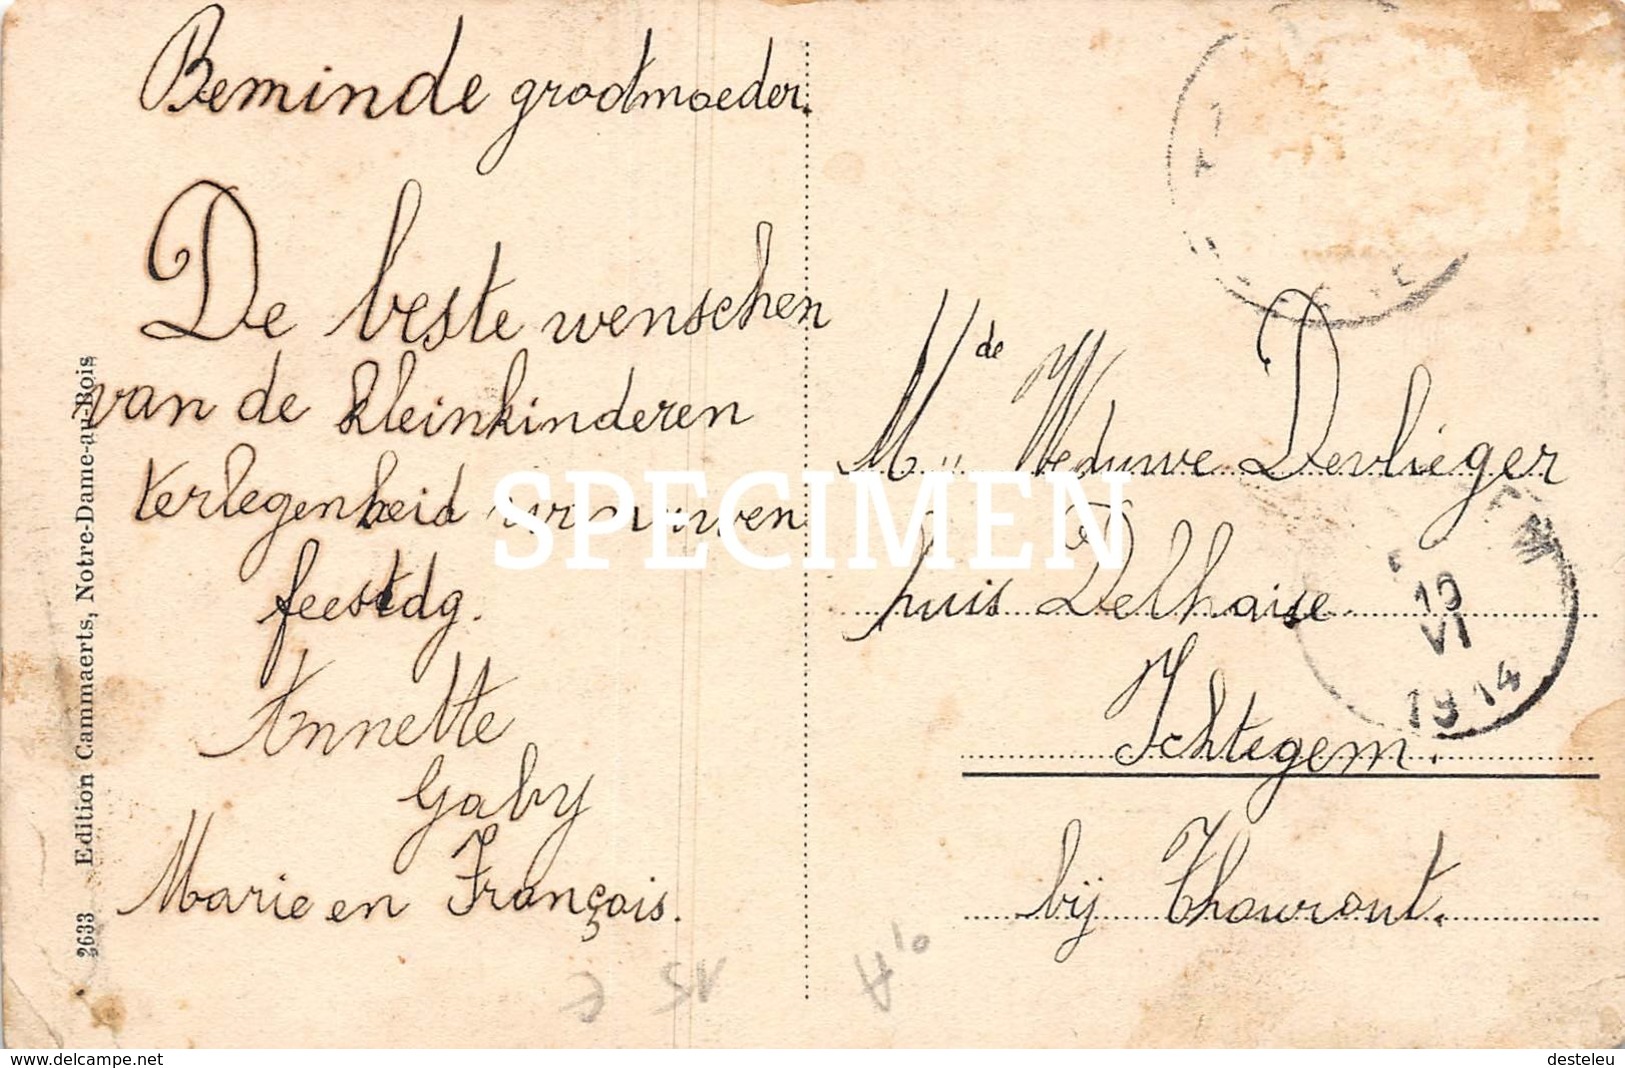 Beminde grootmoeder,
De beste wenschen
van de kleinkinderen
terlegenheid uwen
feestdg.
Annette
Gaby
Marie en François.
2633 Edition Cammaerts, Notre-Dame-au-Bois
Mde Weduwe Devlieger
huis Delhaise
Ichtegem.
bij Thourout.
19
VI
1914
SPECIMEN
delcampe.net
desteleu